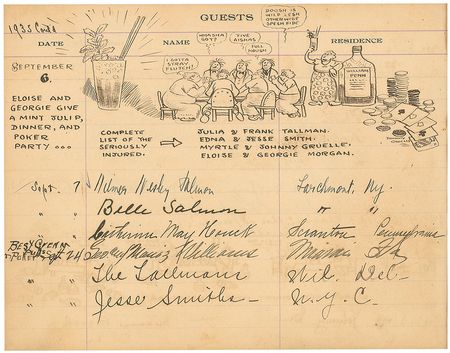 1935 Contd
GUESTS
DATE NAME RESIDENCE
SEPTEMBER
6.
ELOISE AND
GEORGIE GIVE
A MINT JULIP,
DINNER, AND
POKER
PARTY ...
I GOTTA
STRAY
FLUTCH!
WOADJHA
GOT?
FIVE
AISHAS
FULL
HOUSH
DOOSH IS
WILD LESH
OTHERWISH
SPESH FIDE
WILLIAM
PENN
COMPLETE
LIST OF THE
SERIOUSLY
INJURED.
JULIA & FRANK TALLMAN.
EDNA & JESSE SMITH.
MYRTLE & JOHNNY GRUELLE.
ELOISE & GEORGIE MORGAN.
Sept. 7 Wesley Salmon Larchmont, Ny.
" " Belle Salmon " "
" " Catherine May Scranton Pennsylvania
Sept 24 Williams Miami Fla
" " The Tallmans Wil. Del.
" " Jesse Smiths N.Y.C.